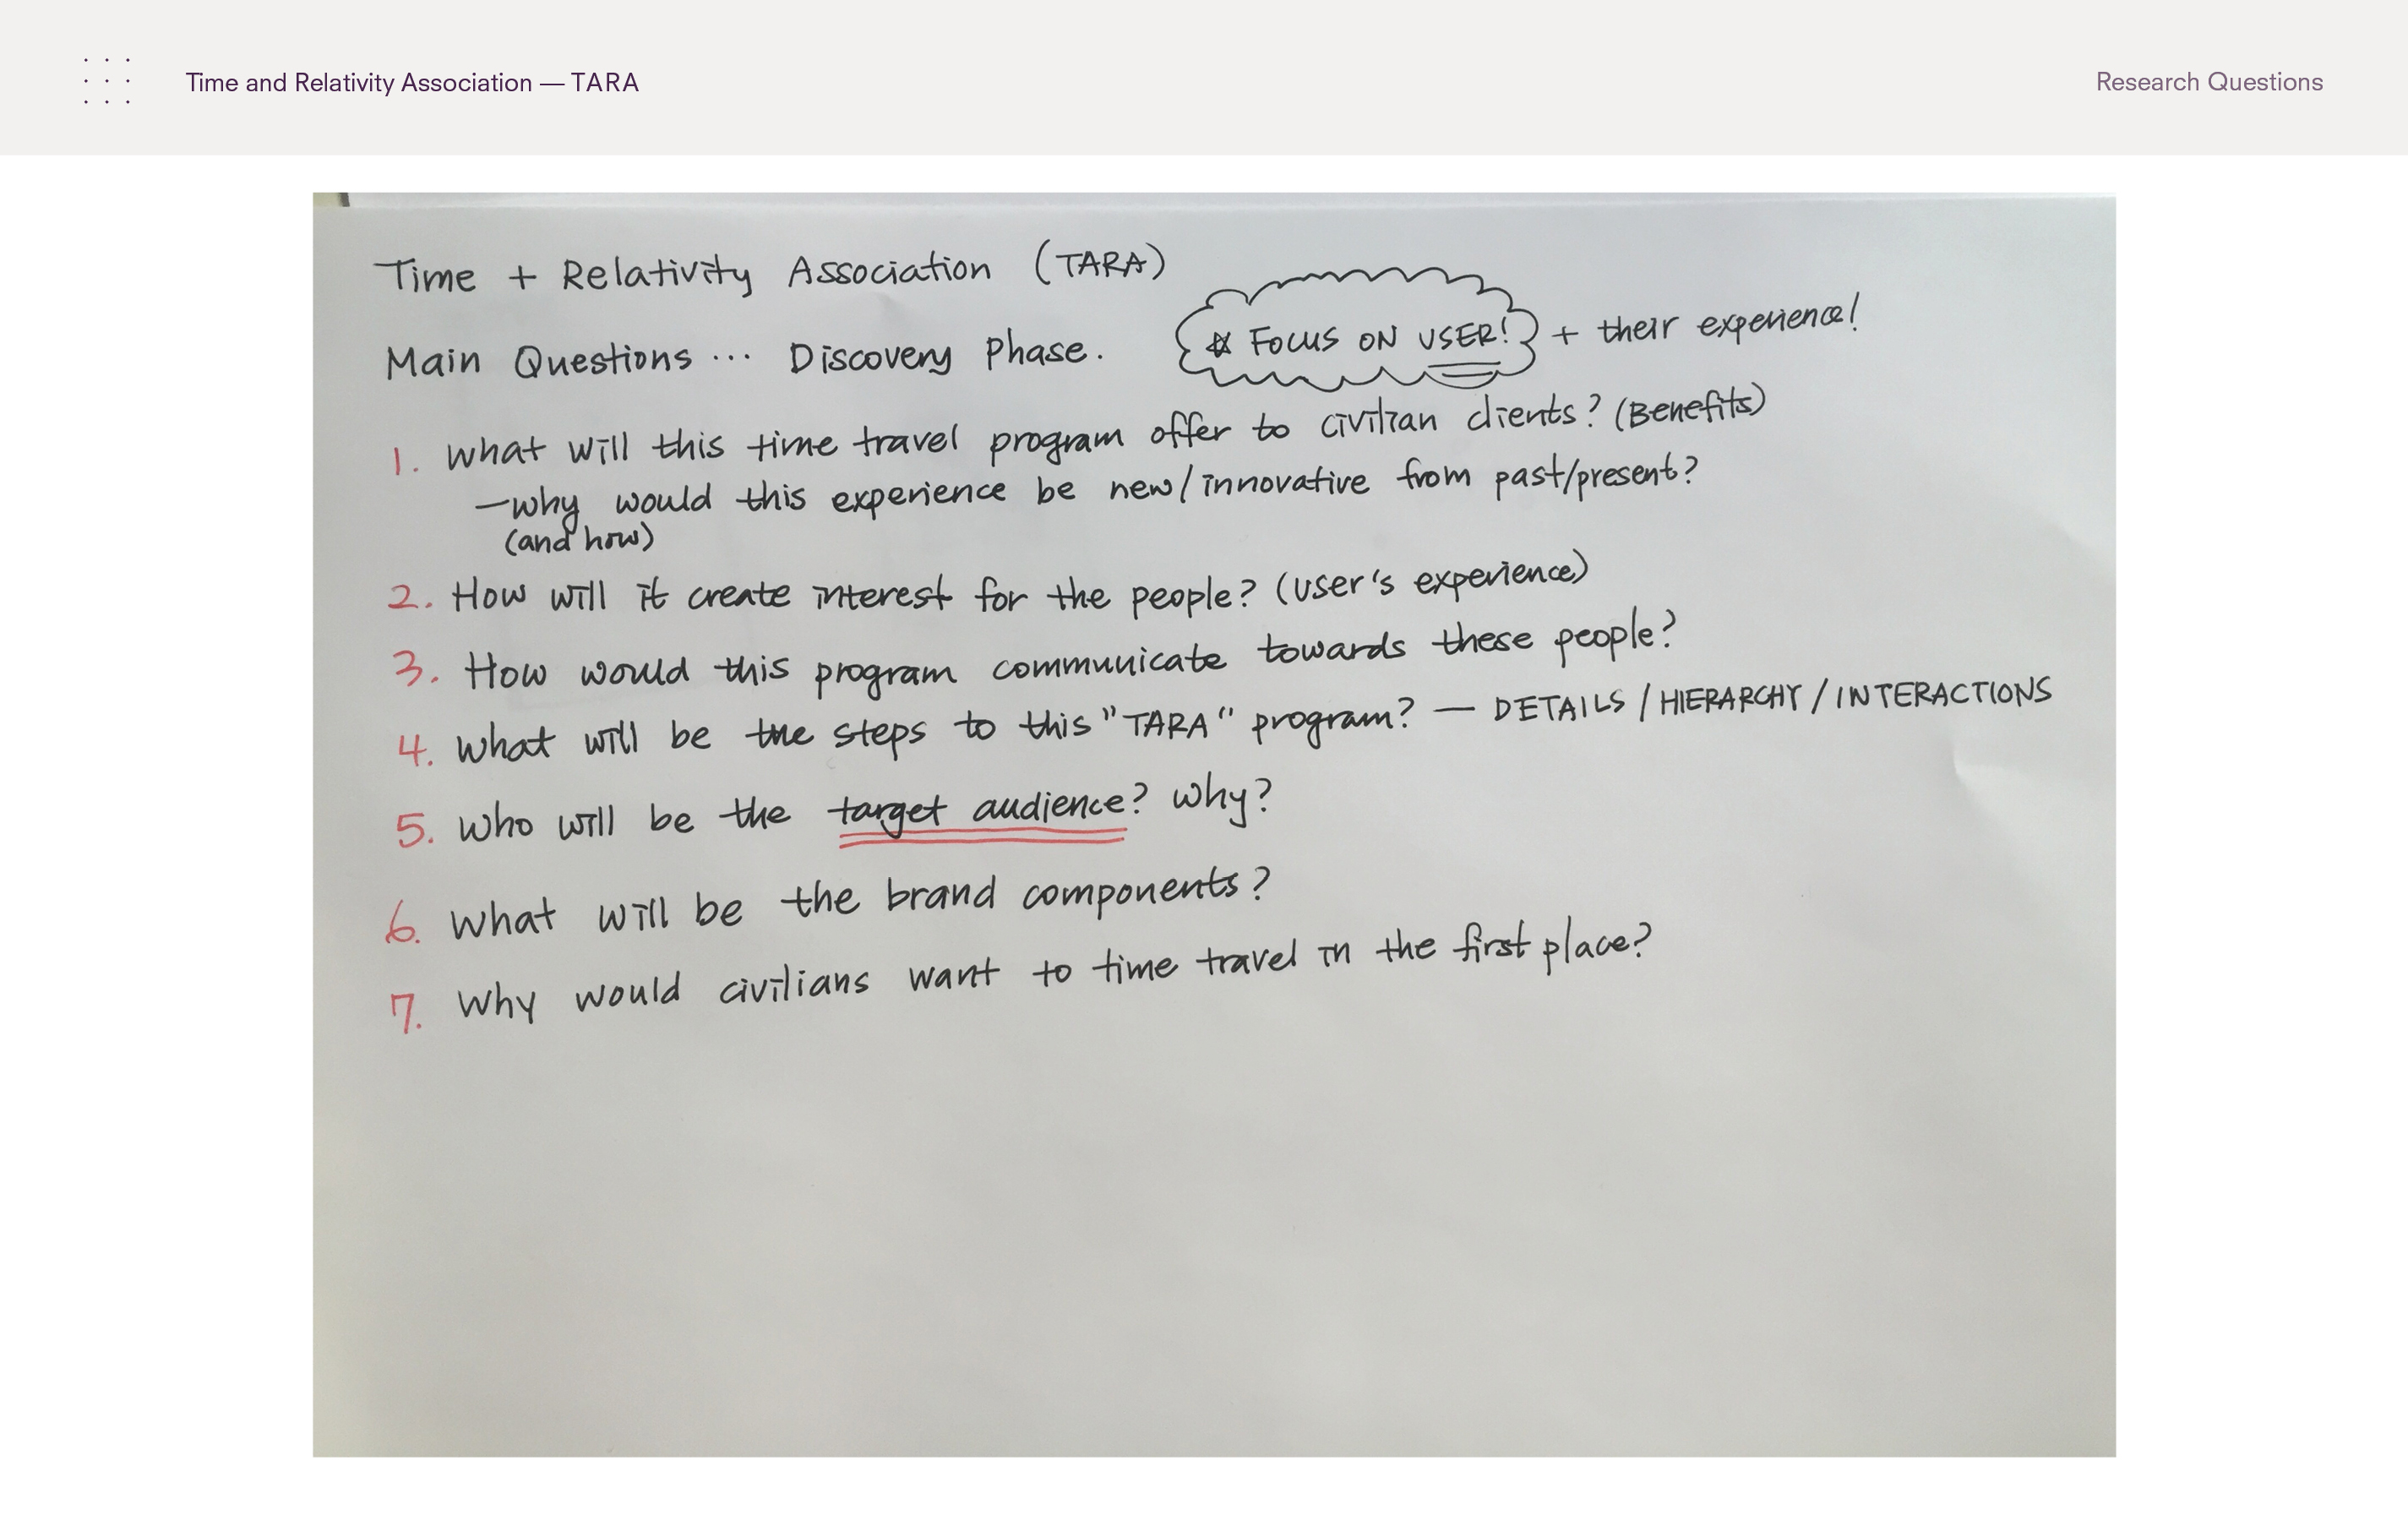 Time and Relativity Association — TARA
Research Questions
Time + Relativity Association (TARA)
Main Questions ... Discovery Phase.
* FOCUS ON USER! + their experience!
1. What will this time travel program offer to civilian clients? (Benefits)
—why would this experience be new/innovative from past/present?
(and how)
2. How will it create interest for the people? (user's experience)
3. How would this program communicate towards these people?
4. What will be the steps to this "TARA" program? — DETAILS / HIERARCHY / INTERACTIONS
5. Who will be the target audience? Why?
6. What will be the brand components?
7. Why would civilians want to time travel in the first place?